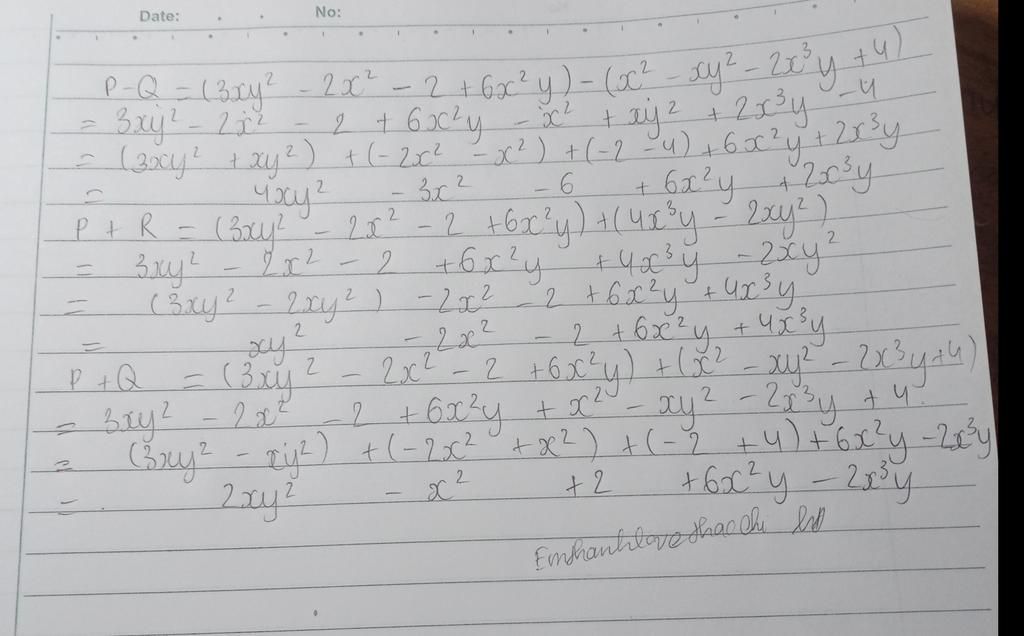 Date: No:
P-Q = (3xy² - 2x² - 2 + 6x²y) - (x² - xy² - 2x³y + 4)
= 3xy² - 2x² - 2 + 6x²y - x² + xy² + 2x³y - 4
= (3xy² + xy²) + (-2x² - x²) + (-2 - 4) + 6x²y + 2x³y
= 4xy² - 3x² - 6 + 6x²y + 2x³y
P + R = (3xy² - 2x² - 2 + 6x²y) + (4x³y - 2xy²)
= 3xy² - 2x² - 2 + 6x²y + 4x³y - 2xy²
= (3xy² - 2xy²) - 2x² - 2 + 6x²y + 4x³y
= xy² - 2x² - 2 + 6x²y + 4x³y
P + Q = (3xy² - 2x² - 2 + 6x²y) + (x² - xy² - 2x³y + 4)
= 3xy² - 2x² - 2 + 6x²y + x² - xy² - 2x³y + 4
= (3xy² - xy²) + (-2x² + x²) + (-2 + 4) + 6x²y - 2x³y
= 2xy² - x² + 2 + 6x²y - 2x³y